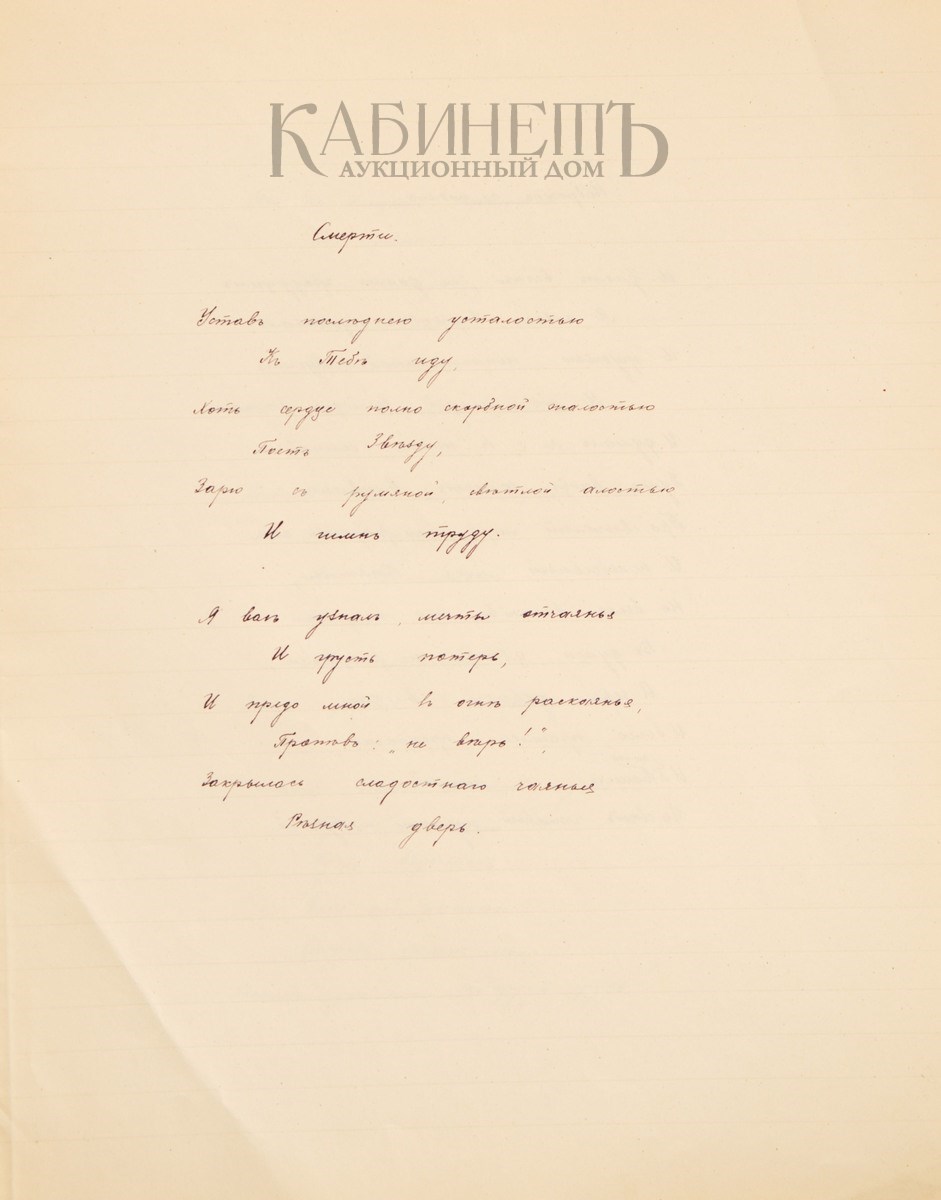 КАБИНЕТЪ
АУКЦИОННЫЙ ДОМ
Смерти.
Уставъ послѣднею усталостью
Къ Тебѣ иду,
Хоть сердце полно скорбной жалостью
Пѣть Звѣзду,
Зарю съ румяной, свѣтлой алостью
И гимнъ труду.
Я васъ узналъ, мечты отчаянья
И грусть потерь,
И предо мной въ огнѣ раскаянья,
Пропѣвъ: „не вѣрь!",
Закрылась сладостнаго чаянья
Рѣзная дверь.